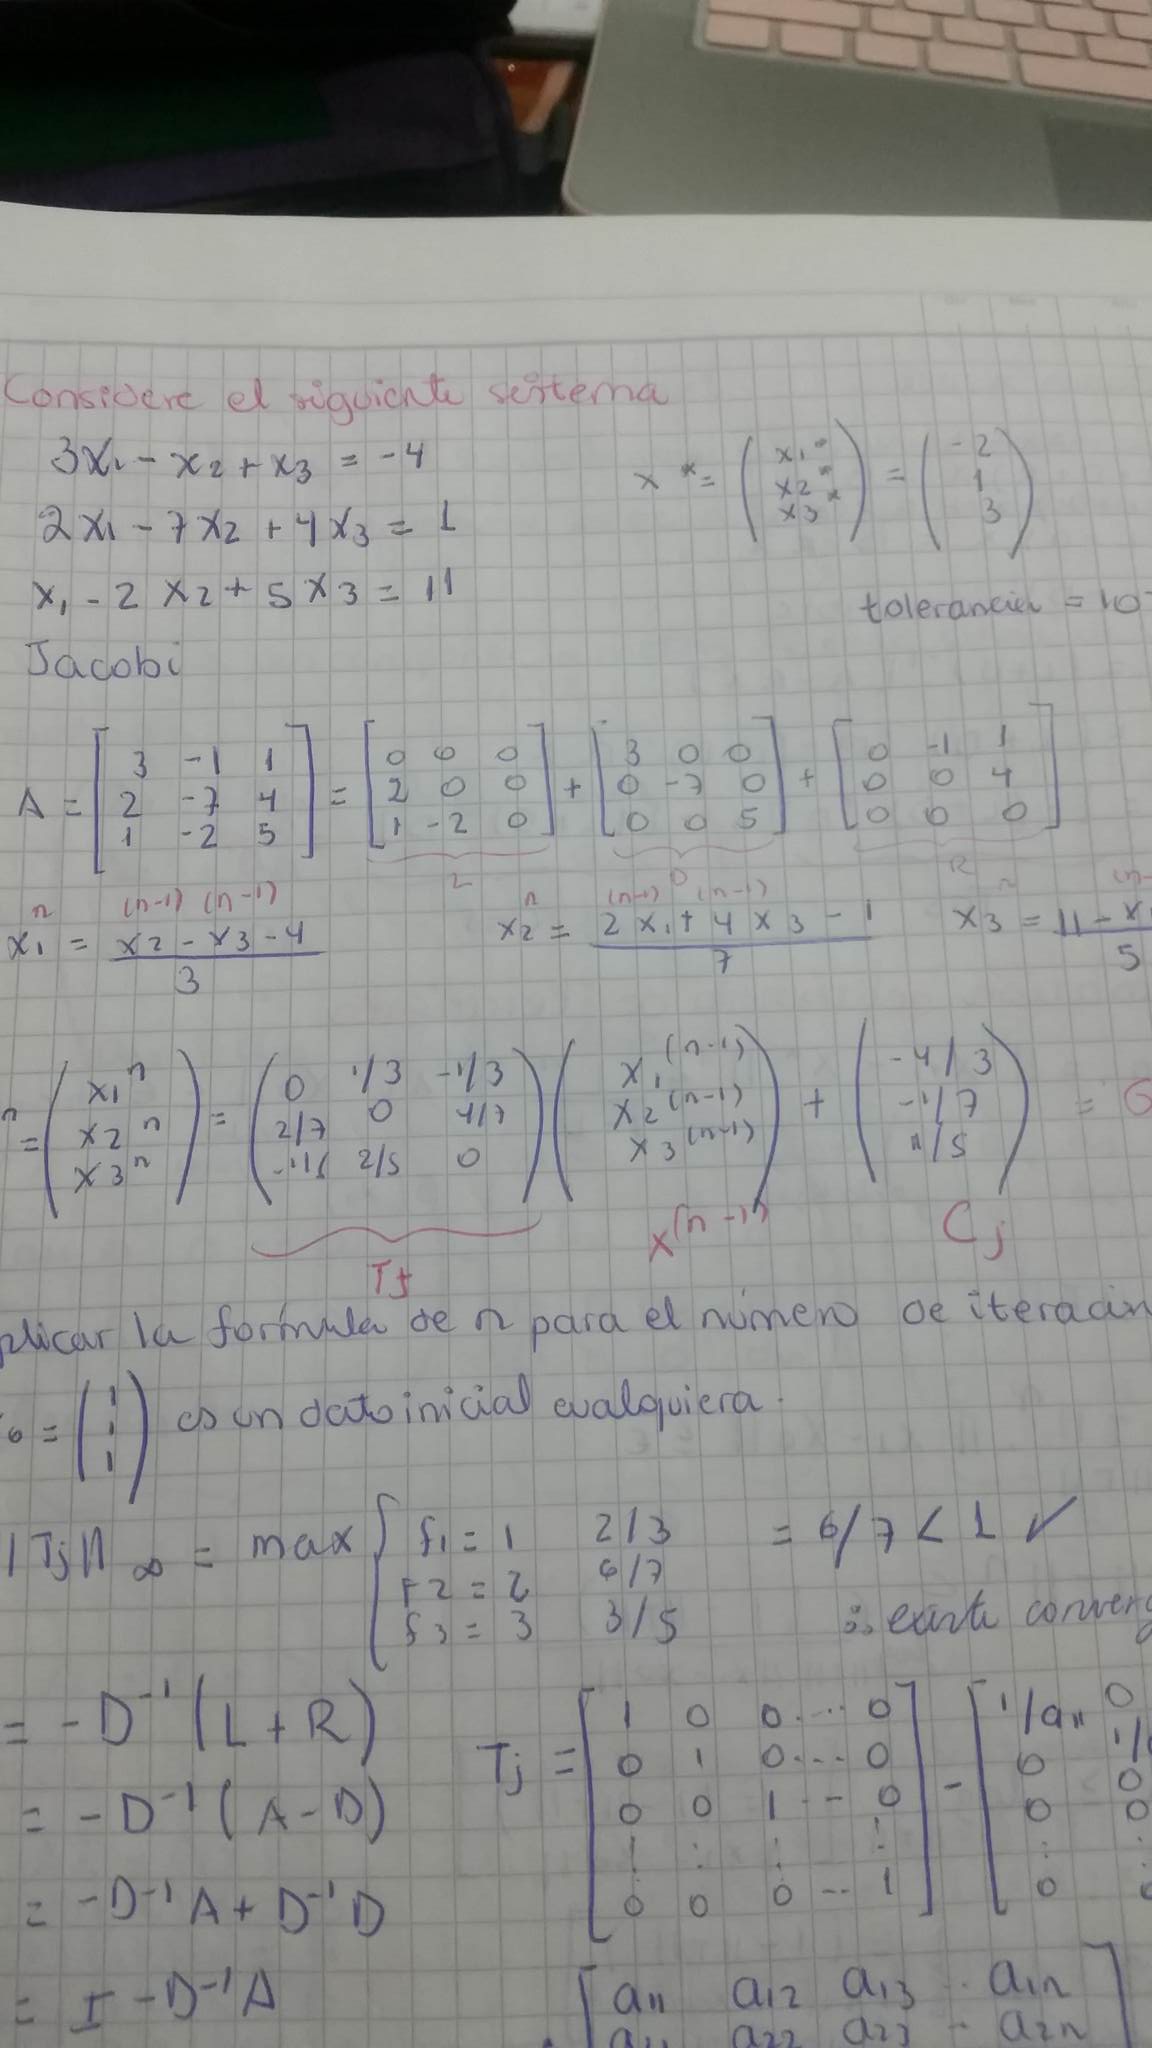 Considere el siguiente sistema
3x1 - x2 + x3 = -4
2x1 - 7x2 + 4x3 = 1
x1 - 2x2 + 5x3 = 11
x* = (x1* x2* x3*) = (-2 1 3)
tolerancia = 10
Jacobi
A = [3 -1 1; 2 -7 4; 1 -2 5] = [0 0 0; 2 0 0; 1 -2 0] + [3 0 0; 0 -7 0; 0 0 5] + [0 -1 1; 0 0 4; 0 0 0]
L D R
x1^n = (x2^(n-1) - x3^(n-1) - 4)/3 x2^n = (2x1^(n-1) + 4x3^(n-1) - 1)/7 x3^n = 11 - x /5
n = (x1^n x2^n x3^n) = (0 1/3 -1/3; 2/7 0 4/7; -1/5 2/5 0) (x1^(n-1) x2^(n-1) x3^(n-1)) + (-4/3 -1/7 11/5) =
Tj x^(n-1) Cj
plicar la formula de n para el número de iteracion
= (1 1 1) es un dato inicial cualquiera.
Tj ∞ = max { f1 = 1 2/3 = 6/7 < 1 ✓
f2 = 2 6/7
f3 = 3 3/5 ∴ existe converg
= -D^-1 (L + R)
= -D^-1 (A - D)
= -D^-1 A + D^-1 D
= I - D^-1 A
Tj = [1 0 0 ... 0; 0 1 0 ... 0; 0 0 1 -- 0; : : : :; 0 0 0 -- 1] - [1/a11 0; 0 1/; 0 0; 0 0; :; 0
[a11 a12 a13 - a1n
a22 a23 - a2n